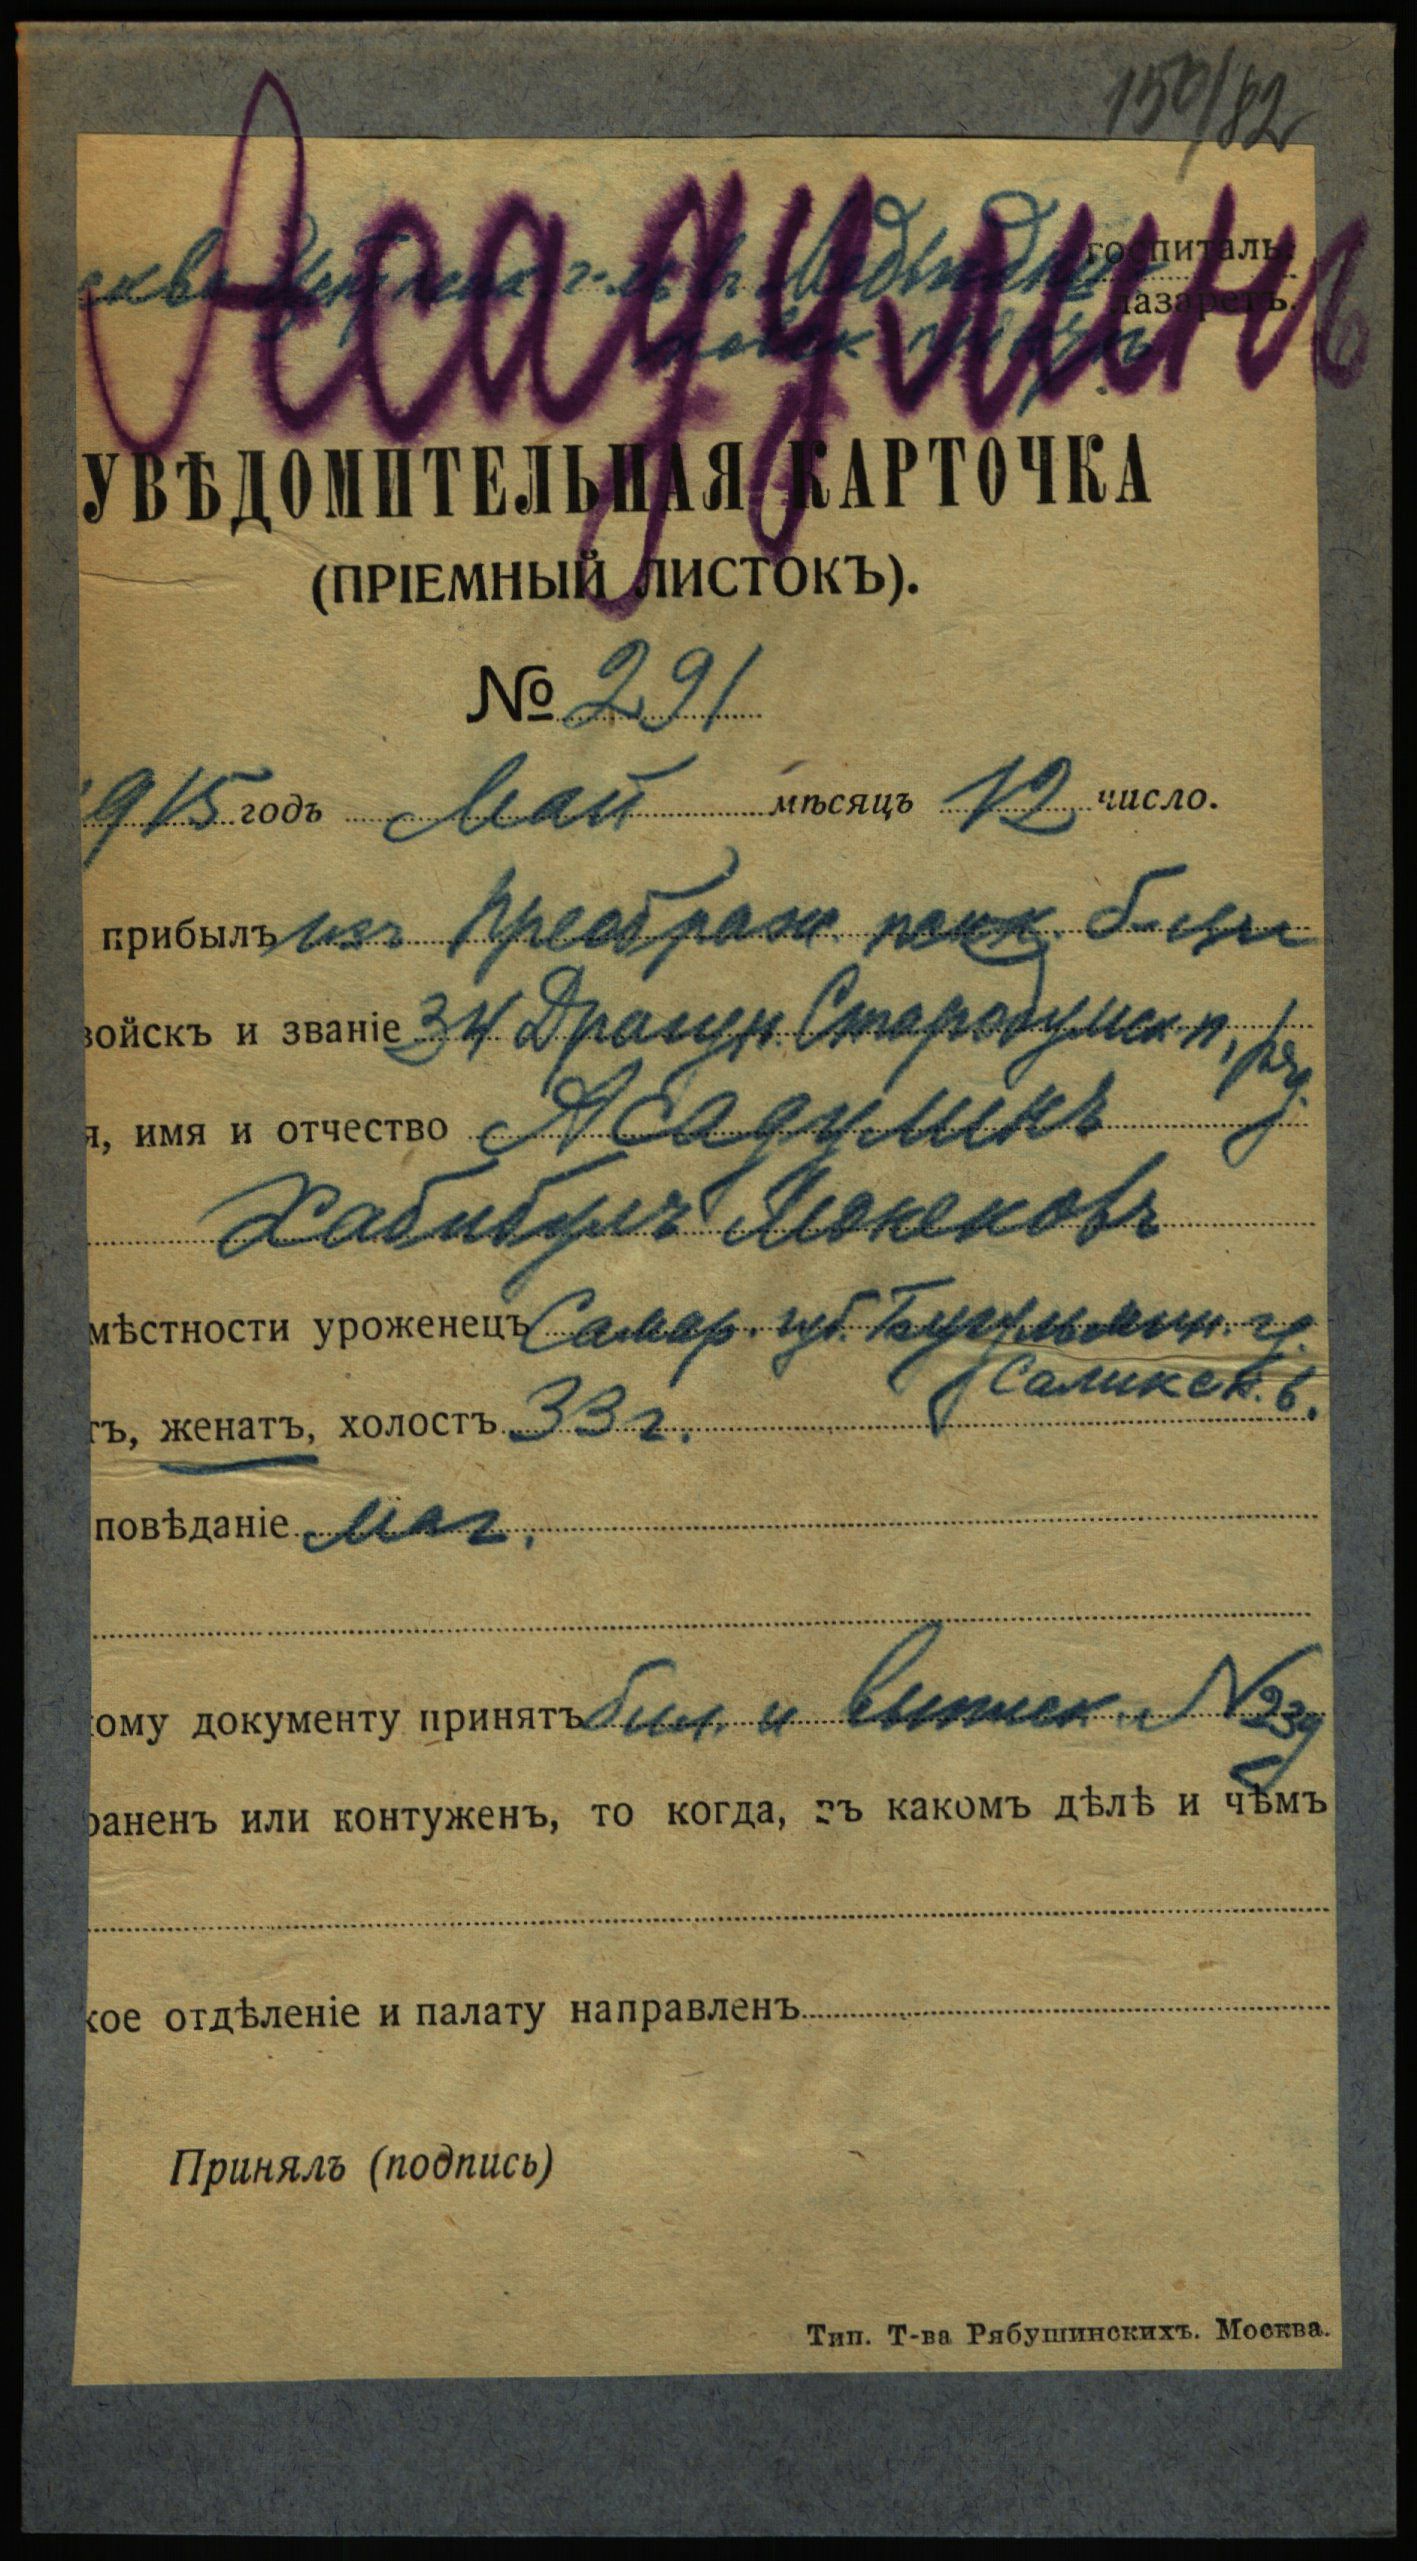 150/82
Асадулинъ
госпиталь.
лазаретъ.
УВѢДОМИТЕЛЬНАЯ КАРТОЧКА
(ПРІЕМНЫЙ ЛИСТОКЪ).
№ 291
1915 годъ Май мѣсяцъ 12 число.
прибылъ изъ Преображ. псих. б-цы
войскъ и званіе 34 Драгун. Стародубск п, ряд.
я, имя и отчество Асадулинъ
Хабибулъ
мѣстности уроженецъ Самар. губ. Бугульмин. у.
тъ, женатъ, холостъ 33 г.
повѣданіе маг.
кому документу принятъ бил. и выписк. №
раненъ или контуженъ, то когда, въ какомъ дѣлѣ и чѣмъ
кое отдѣленіе и палату направленъ
Принялъ (подпись)
Тип. Т-ва Рябушинскихъ. Москва.